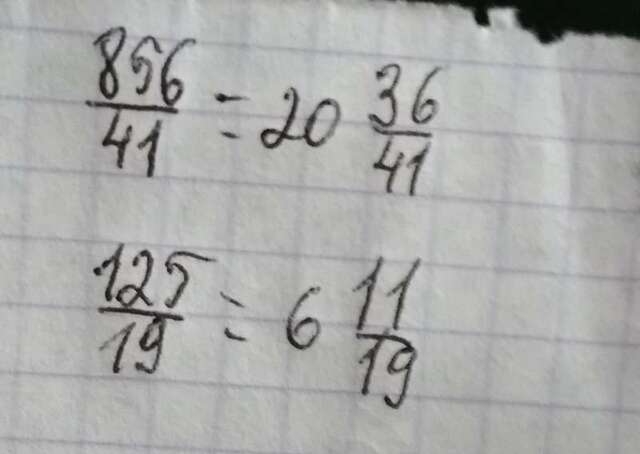 856/41 = 20 36/41
125/19 = 6 11/19